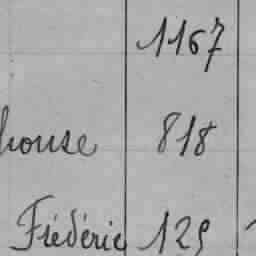 1167
house 818
Frédéric 129